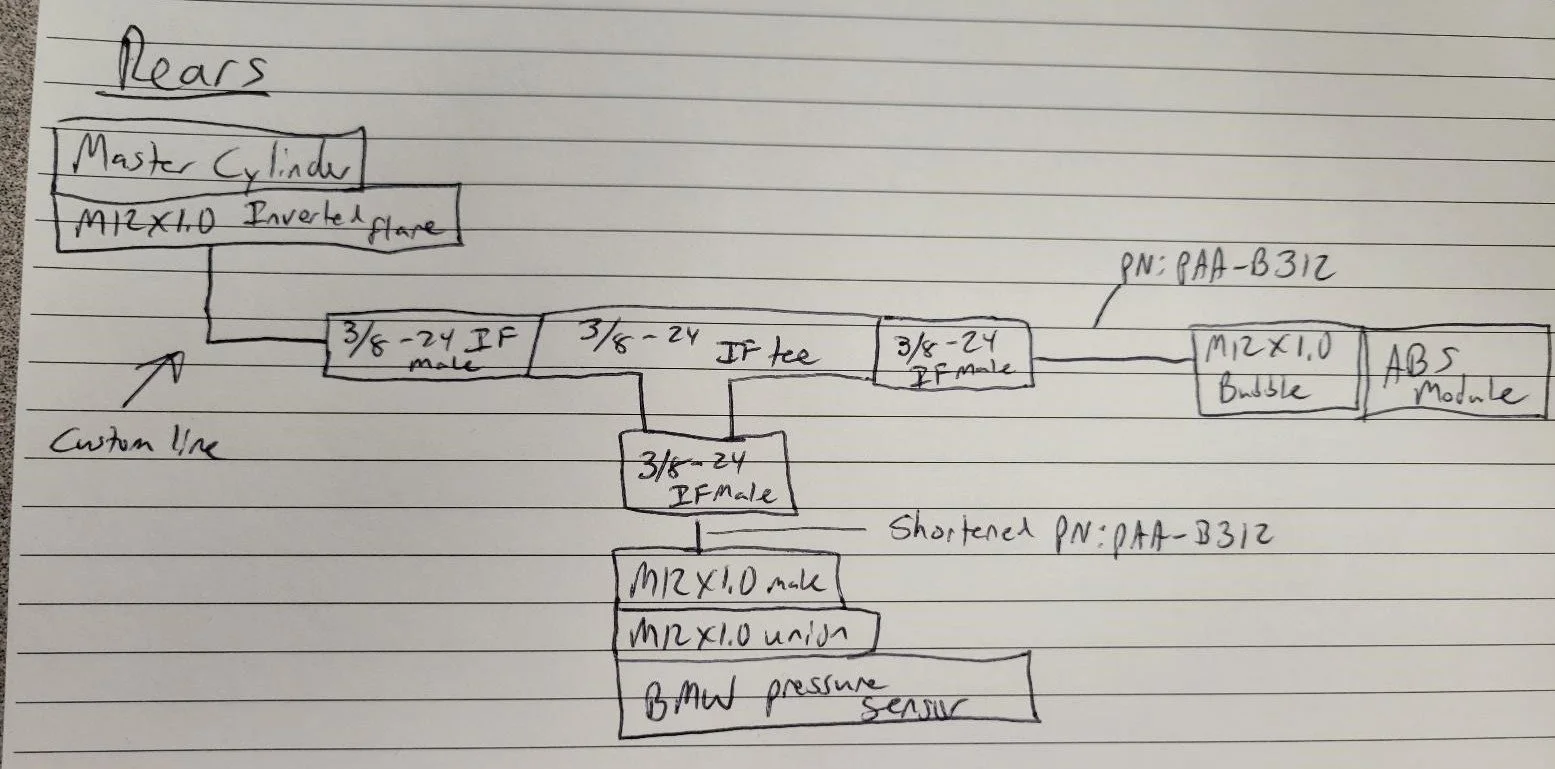 Rears
Master Cylinder
M12X1.0 Inverted flare
PN: PAA-B312
3/8-24 IF
male
3/8-24 IF tee
3/8-24
IF Male
M12X1.0
Bubble
ABS
Module
Custom line
3/8-24
IF Male
Shortened PN: PAA-B312
M12X1.0 male
M12X1.0 union
BMW pressure
sensor